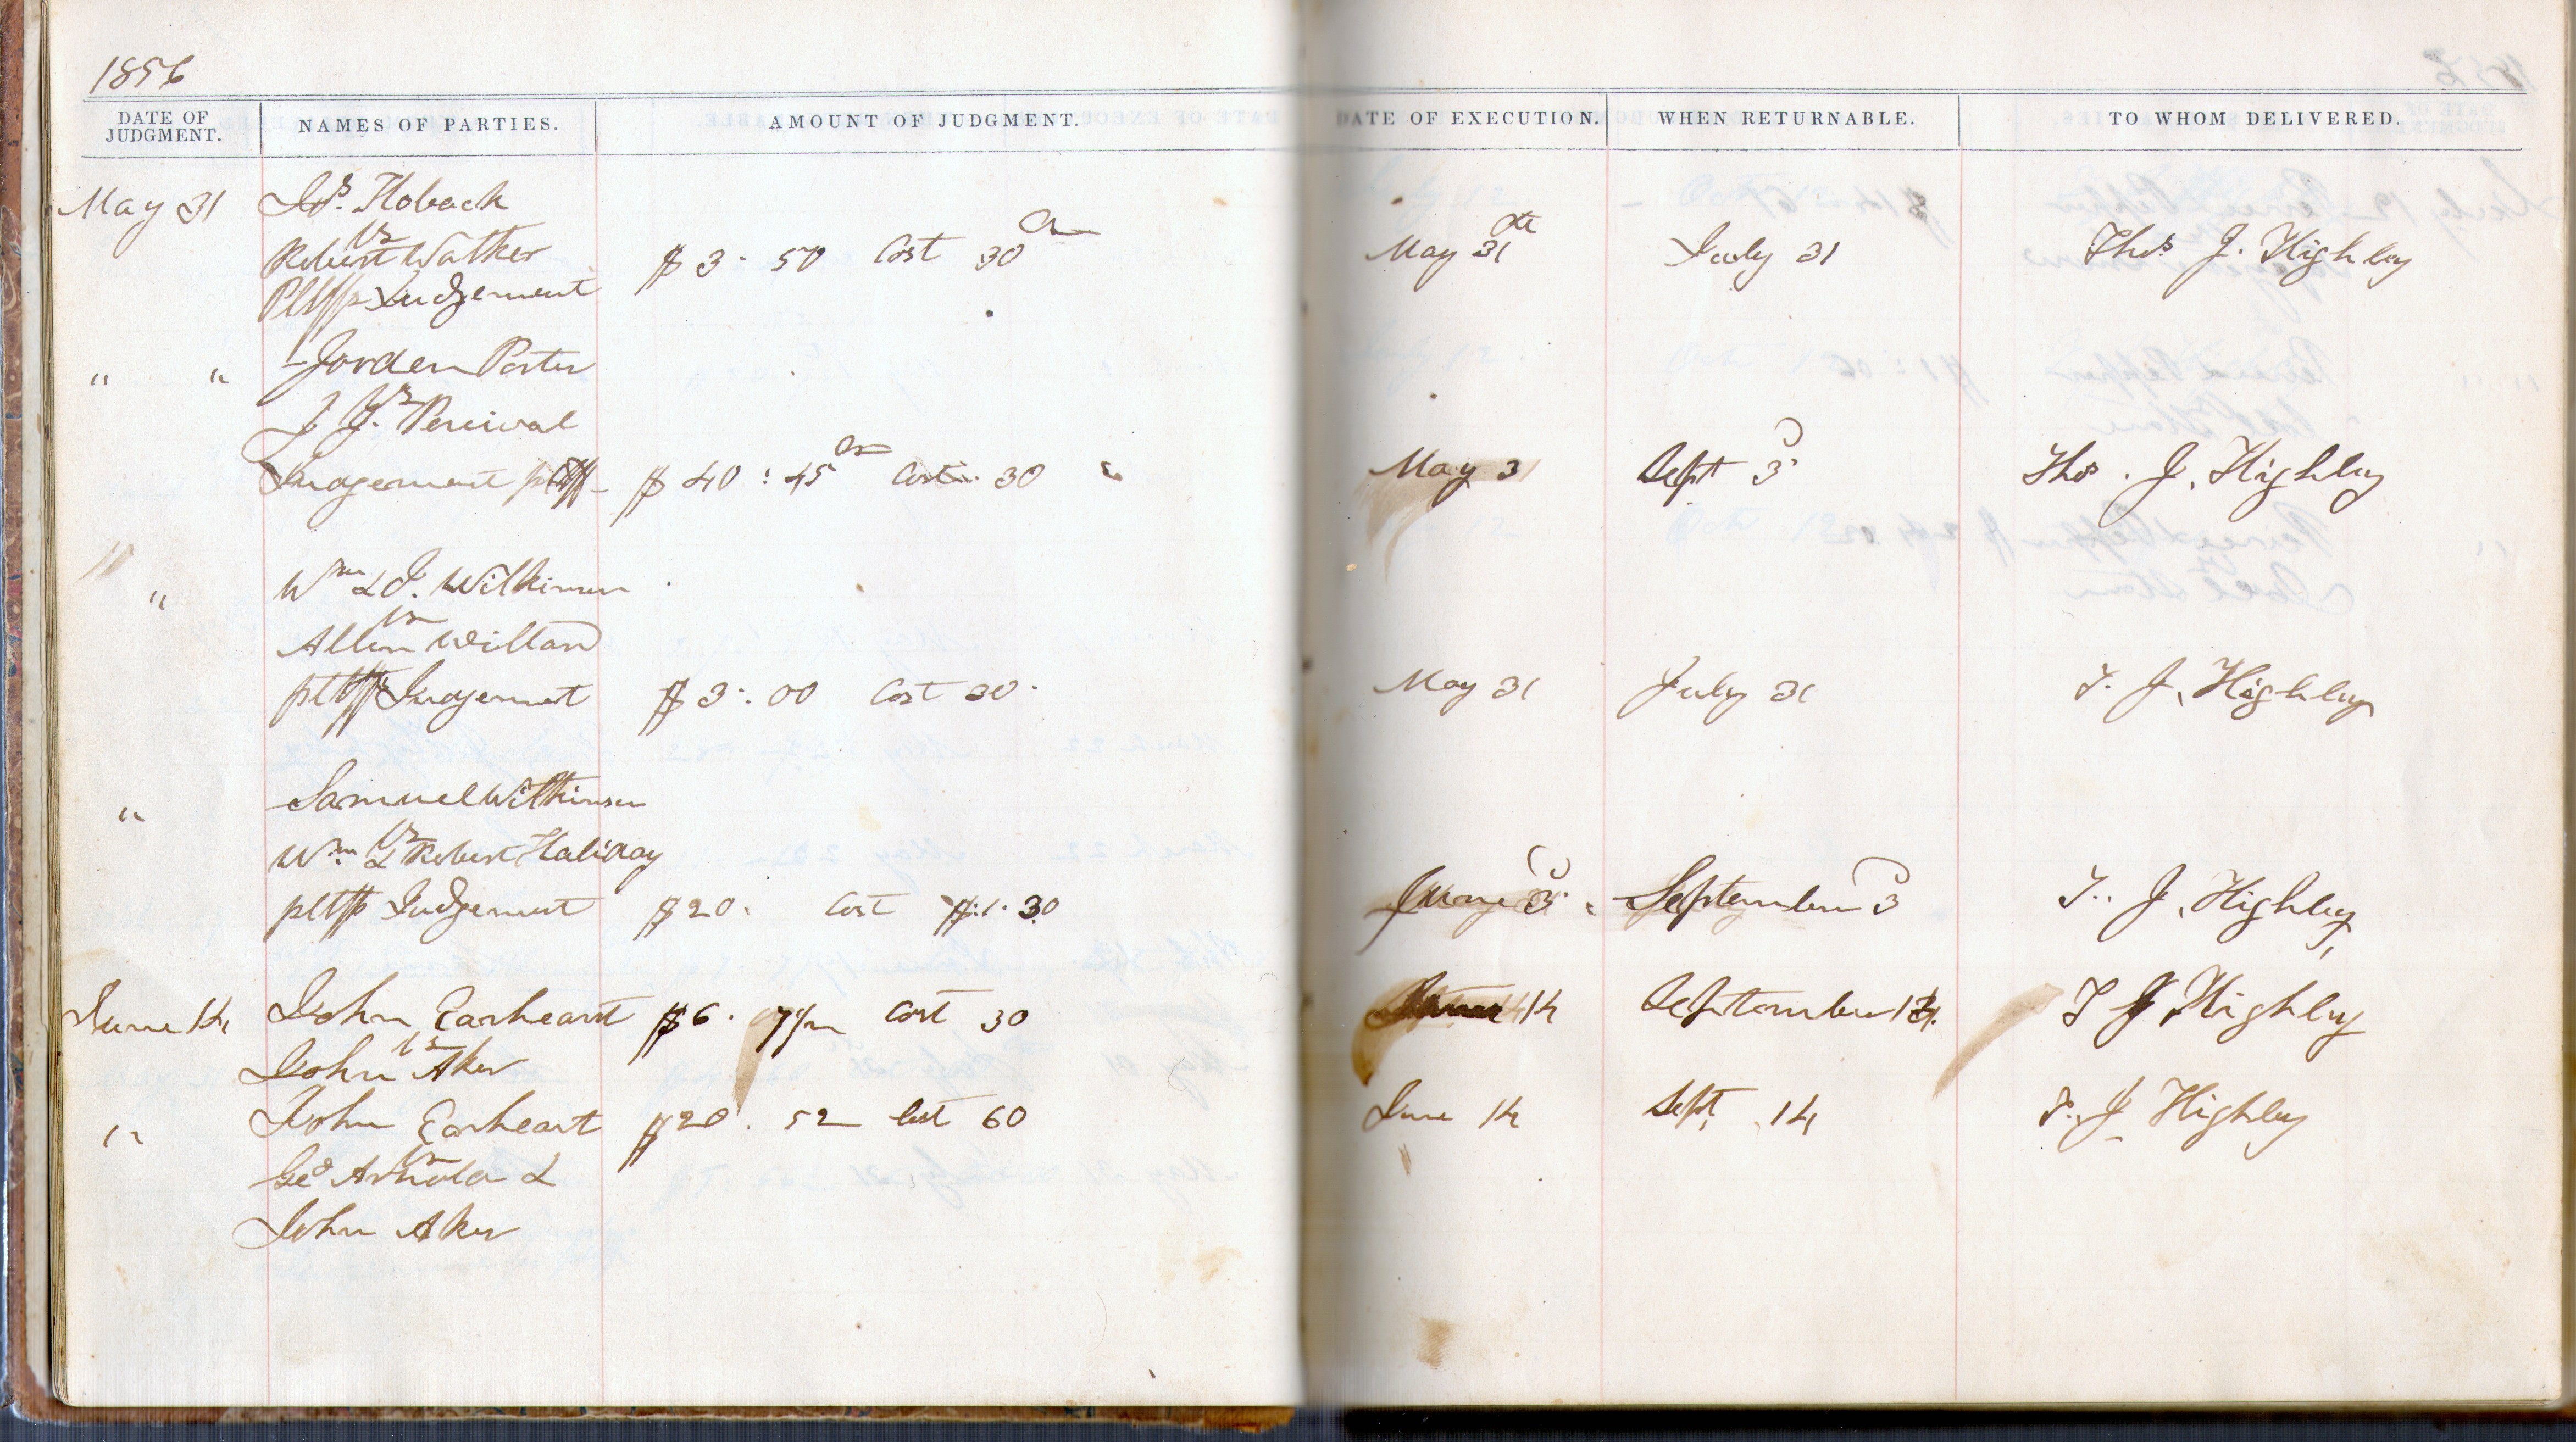 1856
DATE OF JUDGMENT. NAMES OF PARTIES. AMOUNT OF JUDGMENT. DATE OF EXECUTION. WHEN RETURNABLE. TO WHOM DELIVERED.
May 31 Jos. Hoback
vs
Robert Walker $3.50 Cost 30 May 31 July 31 Thos J. Highley
Pltffs Judgement
" " Jorden Porter
vs
J. J. Percival
Judgement pltff $40:45 Cost. 30 May 31 Sept 3 Thos. J. Highley
" Wm & J. Wilkinson
vs
Allen Willard
pltffs Judgement $3.00 Cost 30. May 31 July 31 T. J. Highley
" Samuel Wilkinson
vs
Wm & Robert Haliday
pltfs Judgement $20. Cost $1.30 June 3. September 3 T. J. Highley
June 14 John Earheart $6. Cost 30 14 September 14. T J Highley
vs
John Aker
" John Earheart $20.52 Cost 60 June 14 Sept. 14 T. J Highley
vs
Geo Arnold &
John Aker